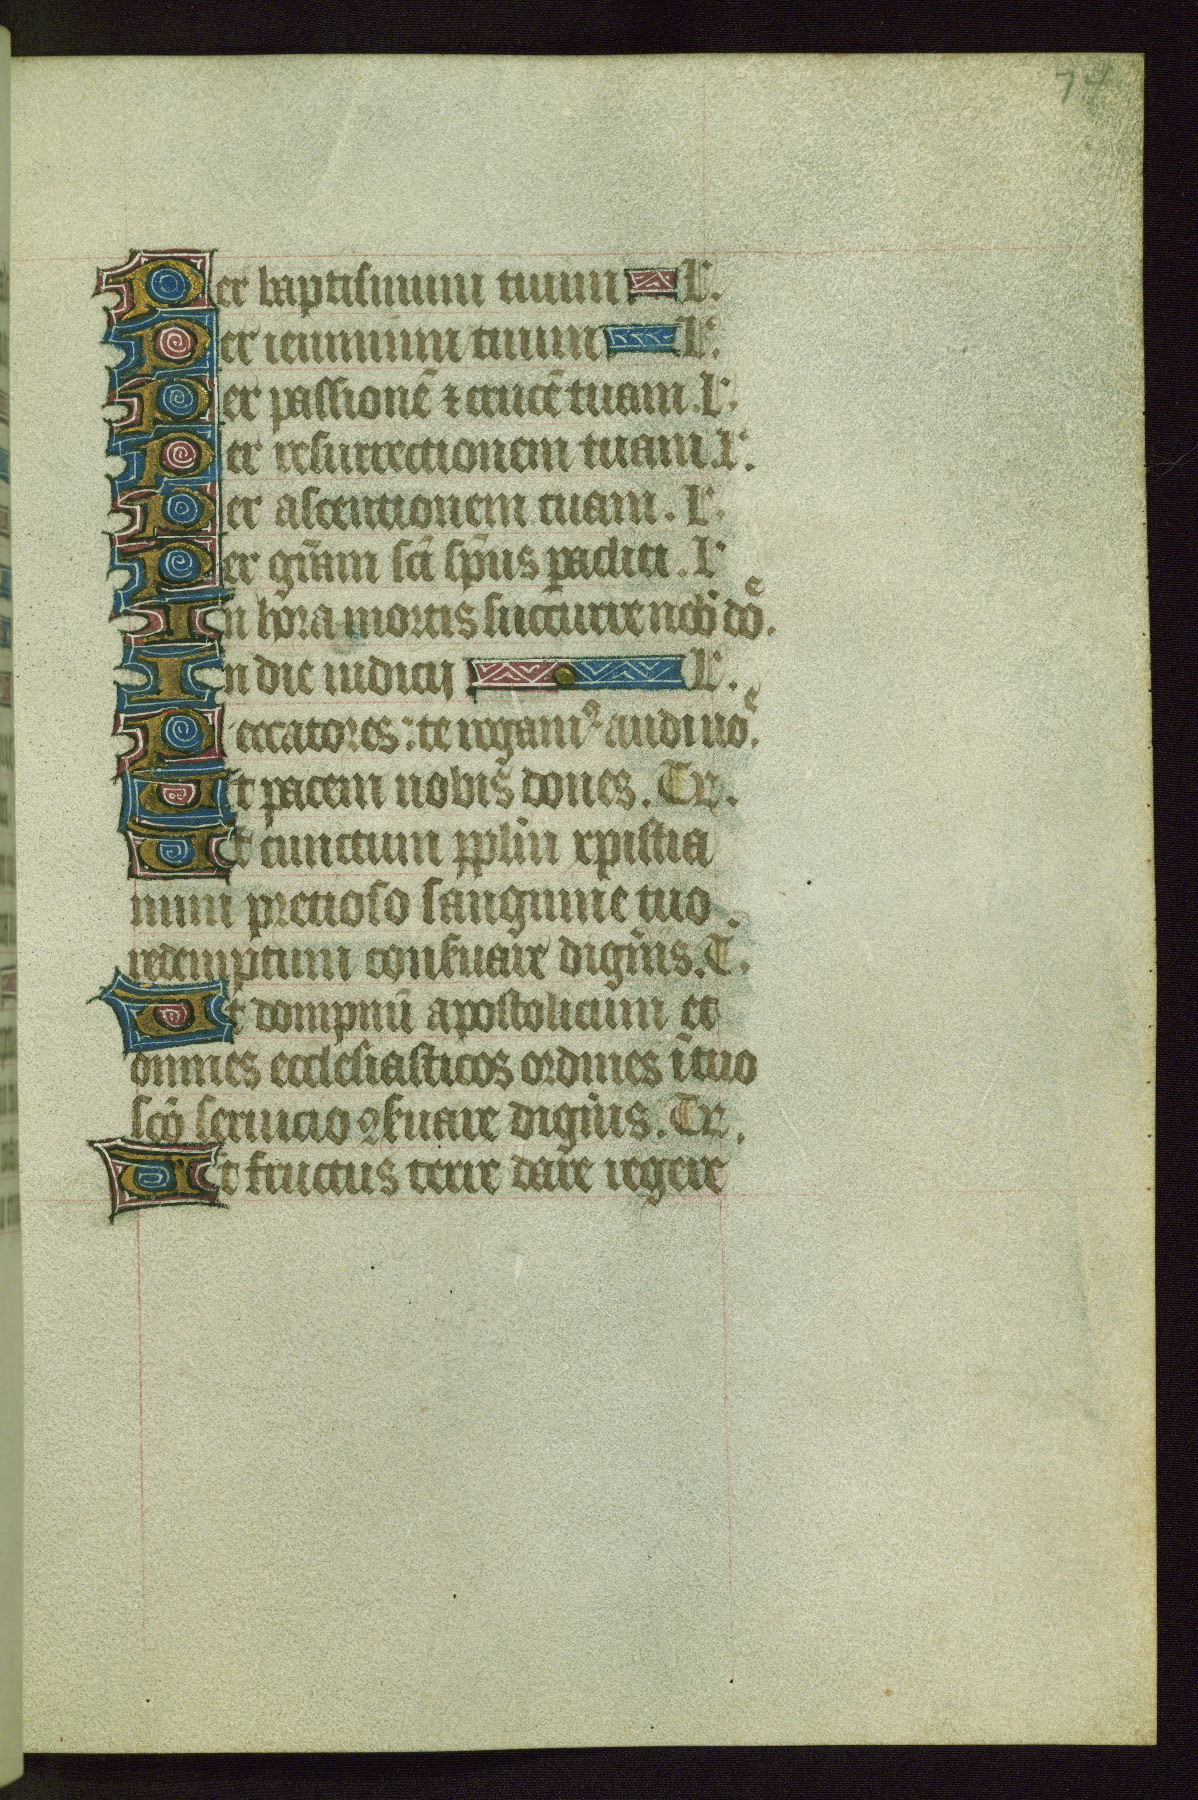 74
Per baptismum tuum L.
Per ieiunium tuum L.
Per passionē ⁊ crucē tuam. L.
Per resurrectionem tuam. L.
Per ascentionem tuam. L.
Per gr̄am sc̄i sp̄us paracliti. L
In hora mortis succurre nob̄ dn̄e.
In die iudicij L.
Peccatores: te rogamꝰ audi nos.
Ut pacem nobis dones. Te r.
Ut cunctum ppl̄m xpistia
num pretioso sanguine tuo
redemptum conseruare digneris. T.
Ut dompnū apostolicum et
omnes ecclesiasticos ordines ī tuo
sc̄o seruicio ꝯseruare digneris. Te r.
Ut fructus terre dare regere